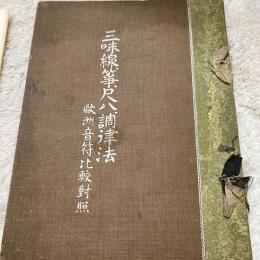 三味線箏尺八調律法
歐洲音符比較對照